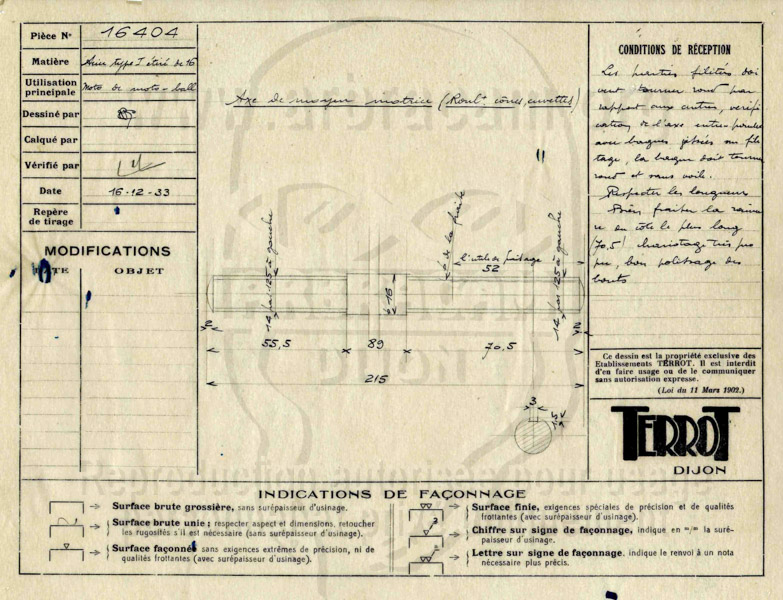 Pièce N° 16404
Matière Acier type I étiré de 16
Utilisation principale Moto de moto-ball
Dessiné par
Calqué par
Vérifié par
Date 16-12-33
Repère de tirage
MODIFICATIONS
DATE OBJET
Axe de moyeu motrice (Roult cônes, cuvettes)
CONDITIONS DE RÉCEPTION
Les parties filetées doi
vent tourner rond par
rapport aux autres, vérifi
cation de l'axe entre-pointes
avec bagues filetées au file
tage, la bague doit tourner
rond et sans voile.
Respecter les longueurs
fraiser la rainu
re du côté le plus long
(70,5) chariotage très pro
pre, bon polissage des
bouts
14 pas 125 à gauche
φ 16
l'utile de fraisage
52
14 pas 125 à gauche
2
55,5
89
70,5
2
215
3
1,5
Ce dessin est la propriété exclusive des
Etablissements TERROT. Il est interdit
d'en faire usage ou de le communiquer
sans autorisation expresse.
(Loi du 11 Mars 1902.)
TERROT
DIJON
INDICATIONS DE FAÇONNAGE
Surface brute grossière, sans surépaisseur d'usinage.
Surface brute unie ; respecter aspect et dimensions, retoucher
les rugosités s'il est nécessaire (sans surépaisseur d'usinage).
Surface façonnée sans exigences extrêmes de précision, ni de
qualités frottantes (avec surépaisseur d'usinage).
Surface finie, exigences spéciales de précision et de qualités
frottantes (avec surépaisseur d'usinage).
Chiffre sur signe de façonnage, indique en m/m la suré-
paisseur d'usinage.
Lettre sur signe de façonnage, indique le renvoi à un nota
nécessaire plus précis.